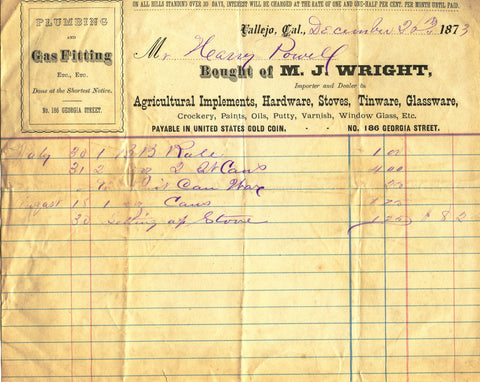 ON ALL BILLS STANDING OVER 30 DAYS, INTEREST WILL BE CHARGED AT THE RATE OF ONE AND ONE-HALF PER CENT. PER MONTH UNTIL PAID.
PLUMBING
AND
Gas Fitting
Etc., Etc.
Done at the Shortest Notice.
No. 186 GEORGIA STREET.
Vallejo, Cal., December 20 1873
Mr Harry Powell
Bought of M. J. WRIGHT,
Importer and Dealer in
Agricultural Implements, Hardware, Stoves, Tinware, Glassware,
Crockery, Paints, Oils, Putty, Varnish, Window Glass, Etc.
PAYABLE IN UNITED STATES GOLD COIN. - - NO. 186 GEORGIA STREET.
July 30 1 Rule 1 00
31 2 2 Qt Cans 4 00
1 Can 25
August 18 1 Cans 1 25
30 Setting up Stove 1 25 8 2